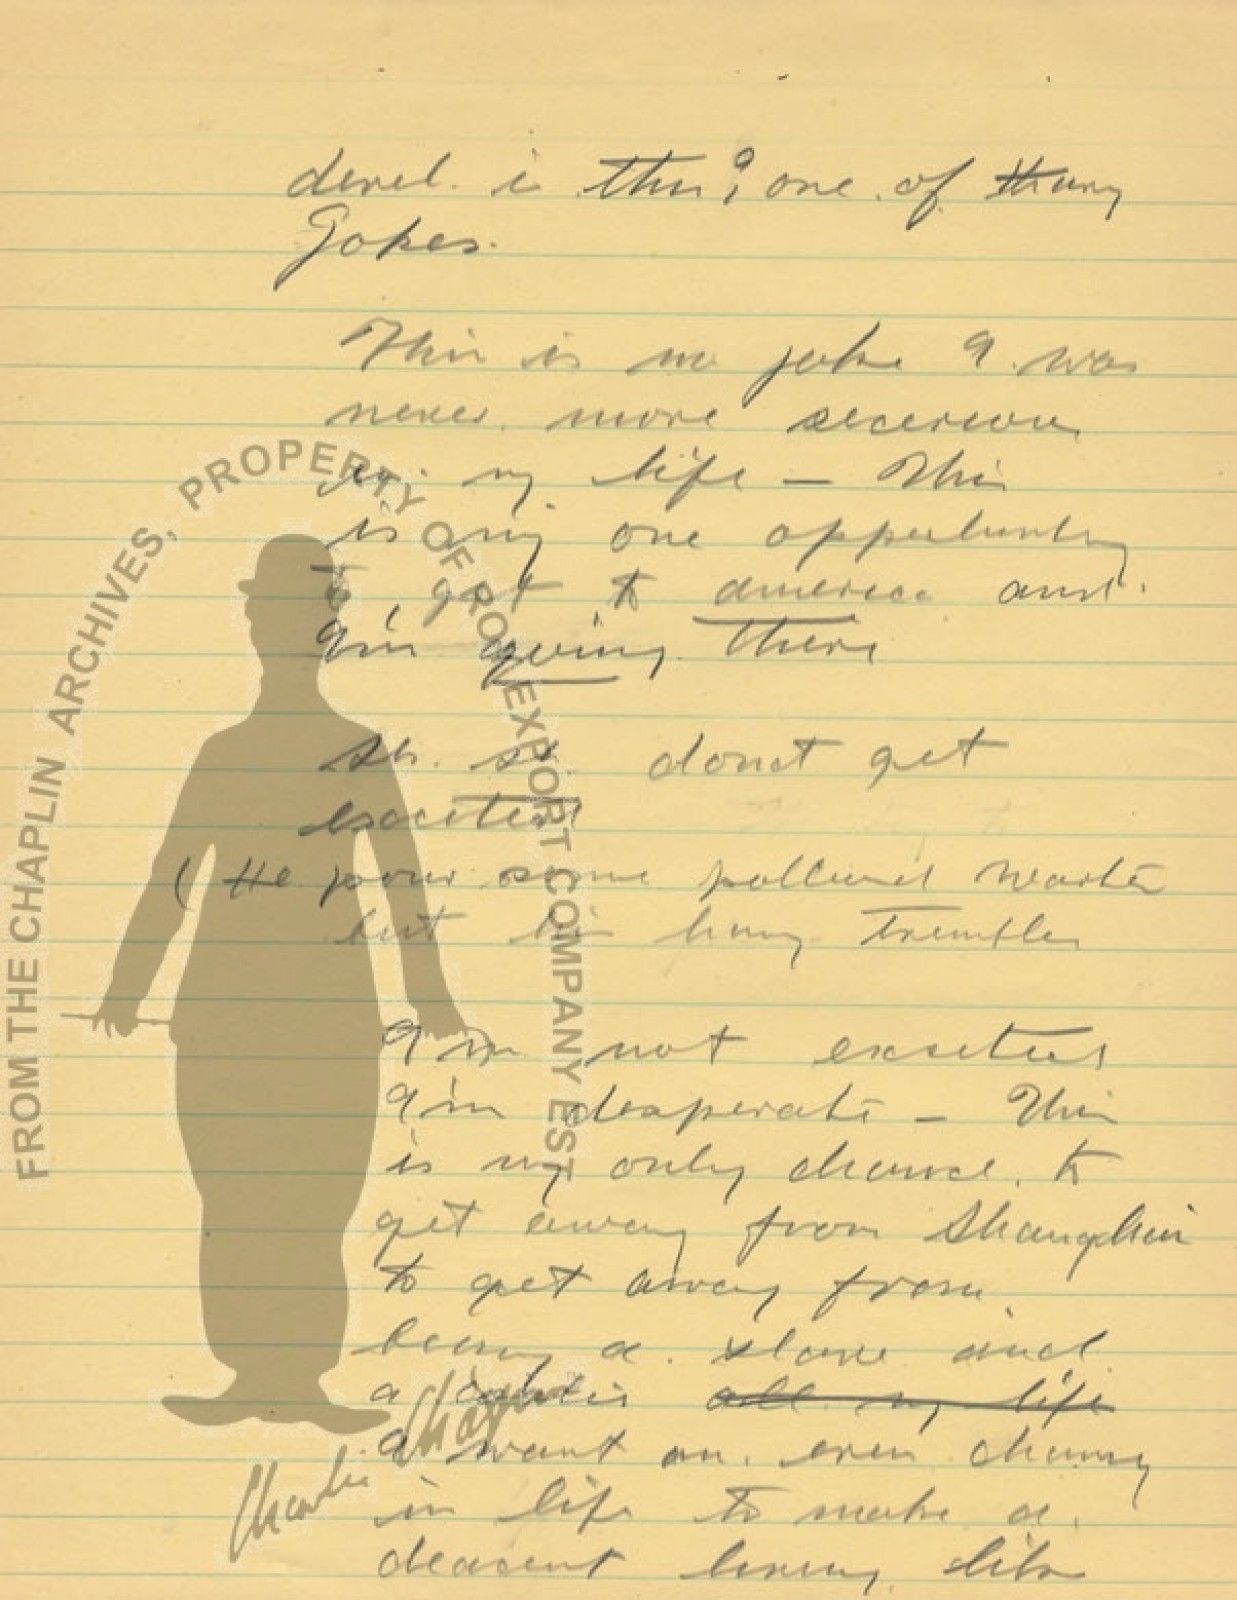 devel. is this? one of thwry
Jokes.
This is no joke I was
never more secerious
in my life — This
is my one oppertunity
to get to america and
I'm going there
sh. sh. donct get
exceited
(He pour some water
but his trembles
I'm not excited
I'm desperate — This
is my only chance to
get away from Shanghai
to get away from
being a slave and
a all my life
I want an even
in life to make a
deacent living like
FROM THE CHAPLIN ARCHIVES, PROPERTY OF ROY EXPORT COMPANY EST
Charlie Chaplin